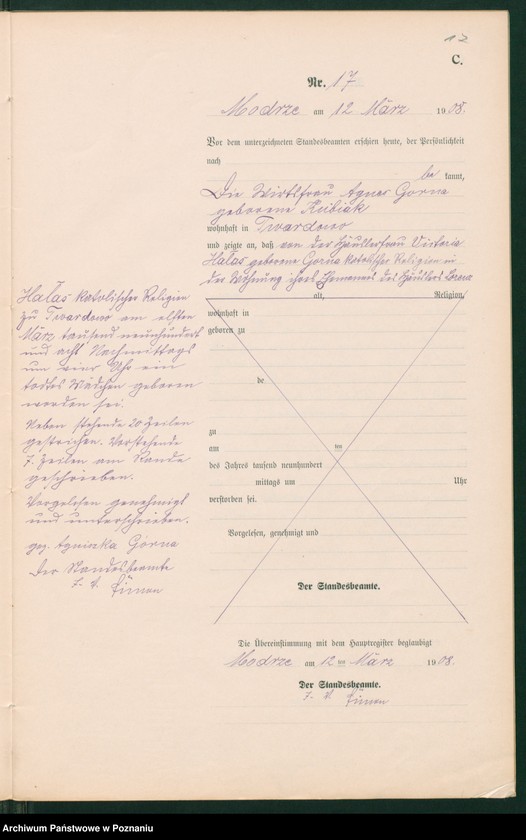 12
C.
Nr. 17
Modrze am 12 März 1908.
Vor dem unterzeichneten Standesbeamten erschien heute, der Persönlichkeit
nach
be kannt,
Die Wirtsfrau Agnes Gorna
geborene Kubiak
wohnhaft in Twardowo
und zeigte an, daß von der Häuslerfrau Victoria
Halas geborene Gorna katolischer Religion in
der Wohnung ihres Ehemannes des Häuslers Lorenz
alt, Religion,
wohnhaft in
geboren zu
de
zu
am ten
des Jahres tausend neunhundert
mittags um Uhr
verstorben sei.
Vorgelesen, genehmigt und
Der Standesbeamte.
Halas katolischer Religion
zu Twardowo am elften
März tausend neunhundert
und acht Nachmittags
um vier Uhr ein
todtes Mädchen geboren
worden sei.
Neben stehende 20 Zeilen
gestrichen. Vorstehende
7 Zeilen am Rande
geschrieben.
Vorgelesen genehmigt
und unterschrieben.
gez. Agnieszka Gorna
Der Standesbeamte
J. V.
Die Übereinstimmung mit dem Hauptregister beglaubigt
Modrze am 12 ten März 1908.
Der Standesbeamte.
J. V.
Archiwum Państwowe w Poznaniu